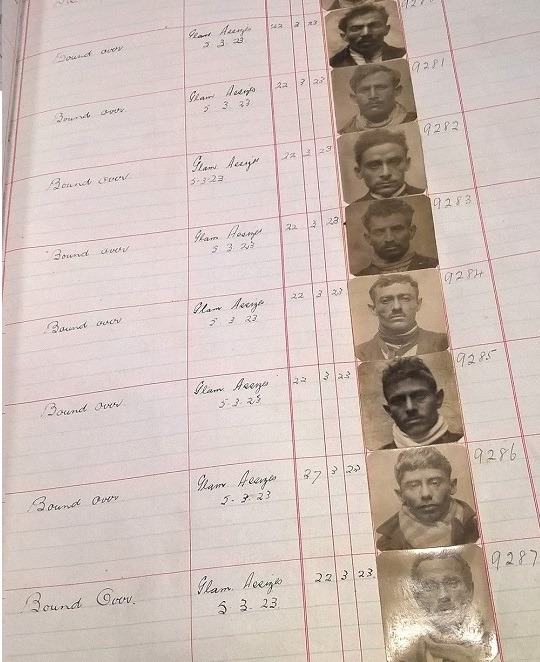 Bound over Glam Assizes 22 3 23
5 3 23
9281
Bound over Glam Assizes 22 3 23
5 3 23
9282
Bound over Glam Assizes 22 3 23
5-3-23
9283
Bound over Glam Assizes 22 3 23
5 3 23
9284
Bound over Glam Assizes 22 3 23
5 3 23
9285
Bound over Glam Assizes 22 3 23
5-3-23
9286
Bound over Glam. Assizes 3 23
5-3-23
9287
Bound Over. Glam. Assizes 22 3 23.
5 3 23.